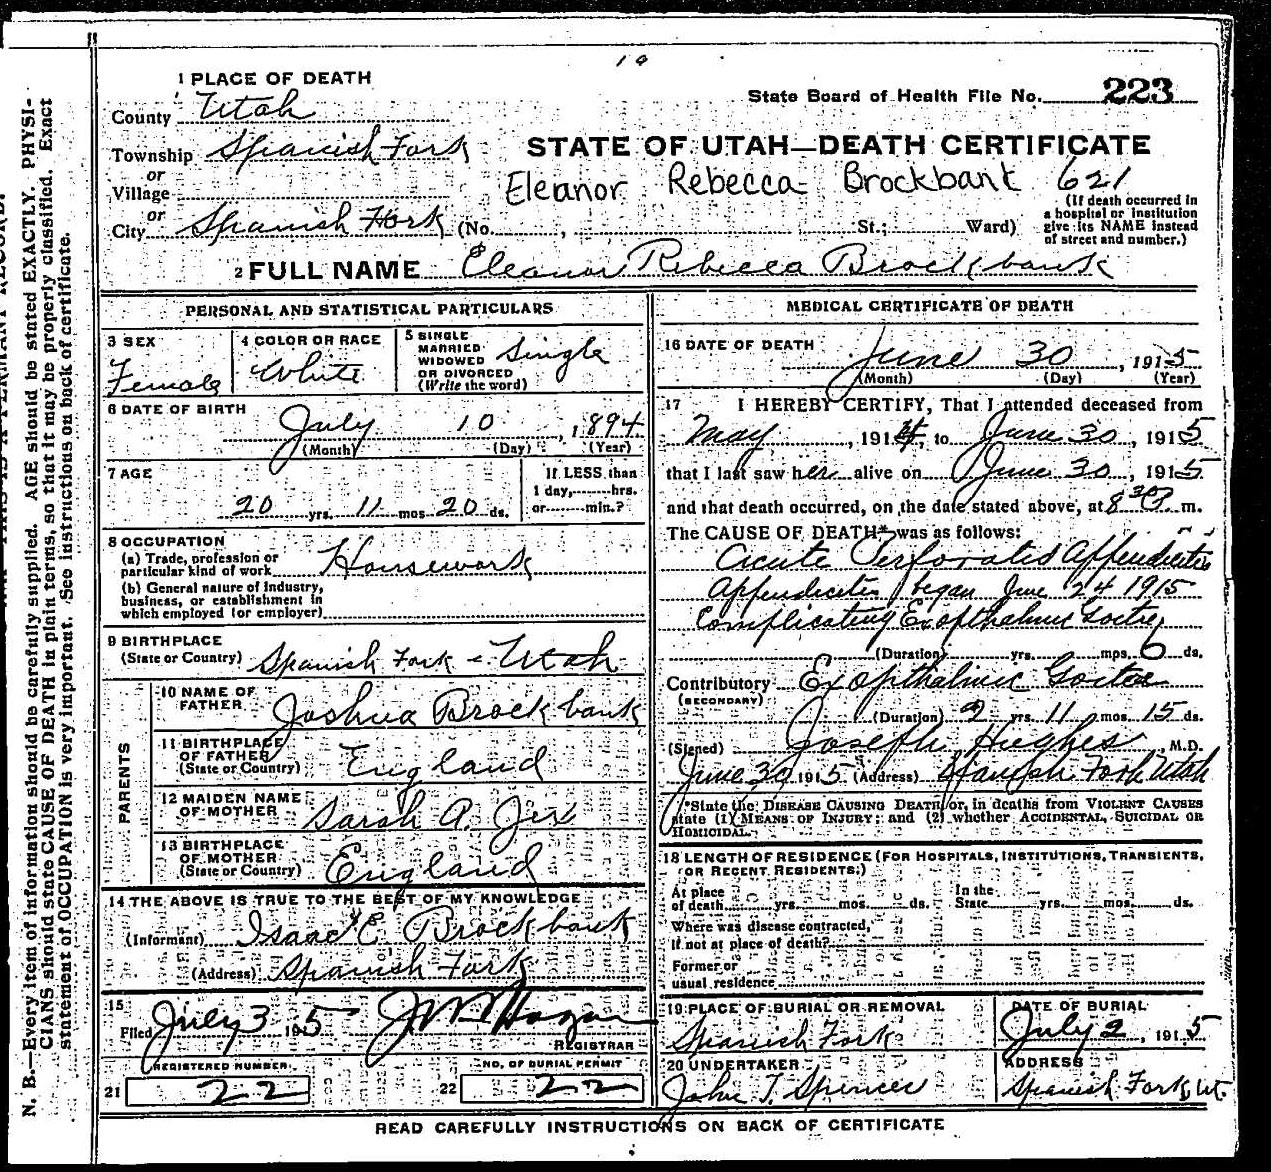 1 PLACE OF DEATH
County Utah
Township Spanish Fork
or
Village
or
City Spanish Fork (No. , St.; Ward)
State Board of Health File No. 223
STATE OF UTAH—DEATH CERTIFICATE
Eleanor Rebecca Brockbank 621
(If death occurred in
a hospital or institution
give its NAME instead
of street and number.)
2 FULL NAME Eleanor Rebecca Brockbank
PERSONAL AND STATISTICAL PARTICULARS
3 SEX
Female
4 COLOR OR RACE
White
5 SINGLE
MARRIED
WIDOWED
OR DIVORCED
(Write the word)
Single
6 DATE OF BIRTH
July 10, 1894
(Month) (Day) (Year)
7 AGE
20 yrs. 11 mos 20 ds.
If LESS than
1 day, hrs.
or min.?
8 OCCUPATION
(a) Trade, profession or
particular kind of work Housework
(b) General nature of industry,
business, or establishment in
which employed (or employer)
9 BIRTHPLACE
(State or Country) Spanish Fork - Utah
PARENTS
10 NAME OF
FATHER Joshua Brockbank
11 BIRTHPLACE
OF FATHER
(State or Country) England
12 MAIDEN NAME
OF MOTHER Sarah A. Jex
13 BIRTHPLACE
OF MOTHER
(State or Country) England
14 THE ABOVE IS TRUE TO THE BEST OF MY KNOWLEDGE
(Informant) Isaac E Brockbank
(Address) Spanish Fork
15
Filed July 3 1915 Hogan
REGISTRAR
REGISTERED NUMBER.
21 22
NO. OF BURIAL PERMIT
22 22
MEDICAL CERTIFICATE OF DEATH
16 DATE OF DEATH
June 30, 1915
(Month) (Day) (Year)
17 I HEREBY CERTIFY, That I attended deceased from
May, 191 , to June 30, 1915
that I last saw her alive on June 30, 1915
and that death occurred, on the date stated above, at 8 30 P. m.
The CAUSE OF DEATH* was as follows:
Acute Perforated Appendicitis
Appendicitis began June 24 1915
Complicating Exopthalmic Goitre
(Duration) yrs. mos. 6 ds.
Contributory Exopthalmic Goitre
(SECONDARY)
(Duration) 2 yrs. 11 mos. 15 ds.
(Signed) Joseph Hughes, M.D.
June 30 1915 (Address) Spanish Fork Utah
*State the DISEASE CAUSING DEATH, or, in deaths from VIOLENT CAUSES
state (1) MEANS OF INJURY; and (2) whether ACCIDENTAL, SUICIDAL OR
HOMICIDAL.
18 LENGTH OF RESIDENCE (FOR HOSPITALS, INSTITUTIONS, TRANSIENTS,
OR RECENT RESIDENTS.)
At place
of death yrs. mos. ds.
In the
State yrs. mos. ds.
Where was disease contracted,
If not at place of death?
Former or
usual residence
19 PLACE OF BURIAL OR REMOVAL
Spanish Fork
DATE OF BURIAL
July 2, 1915
20 UNDERTAKER
John T. Spencer
ADDRESS
Spanish Fork, Ut.
READ CAREFULLY INSTRUCTIONS ON BACK OF CERTIFICATE
N. B.—Every item of information should be carefully supplied. AGE should be stated EXACTLY. PHYSI-
CIANS should state CAUSE OF DEATH in plain terms, so that it may be properly classified. Exact
statement of OCCUPATION is very important. See instructions on back of certificate.